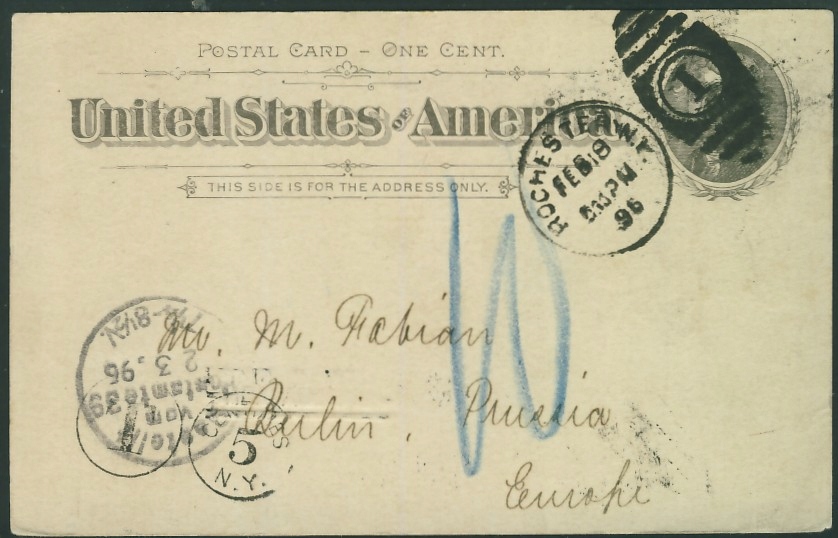 POSTAL CARD – ONE CENT.
United States OF America
THIS SIDE IS FOR THE ADDRESS ONLY.
1
ROCHESTER, N.Y.
FEB 18
PM
96
10
Mr. M. Fabian
Berlin, Prussia
Europe
7¼-8½N.
2 3.96
Postamte 39
vom
T
5
N.Y.